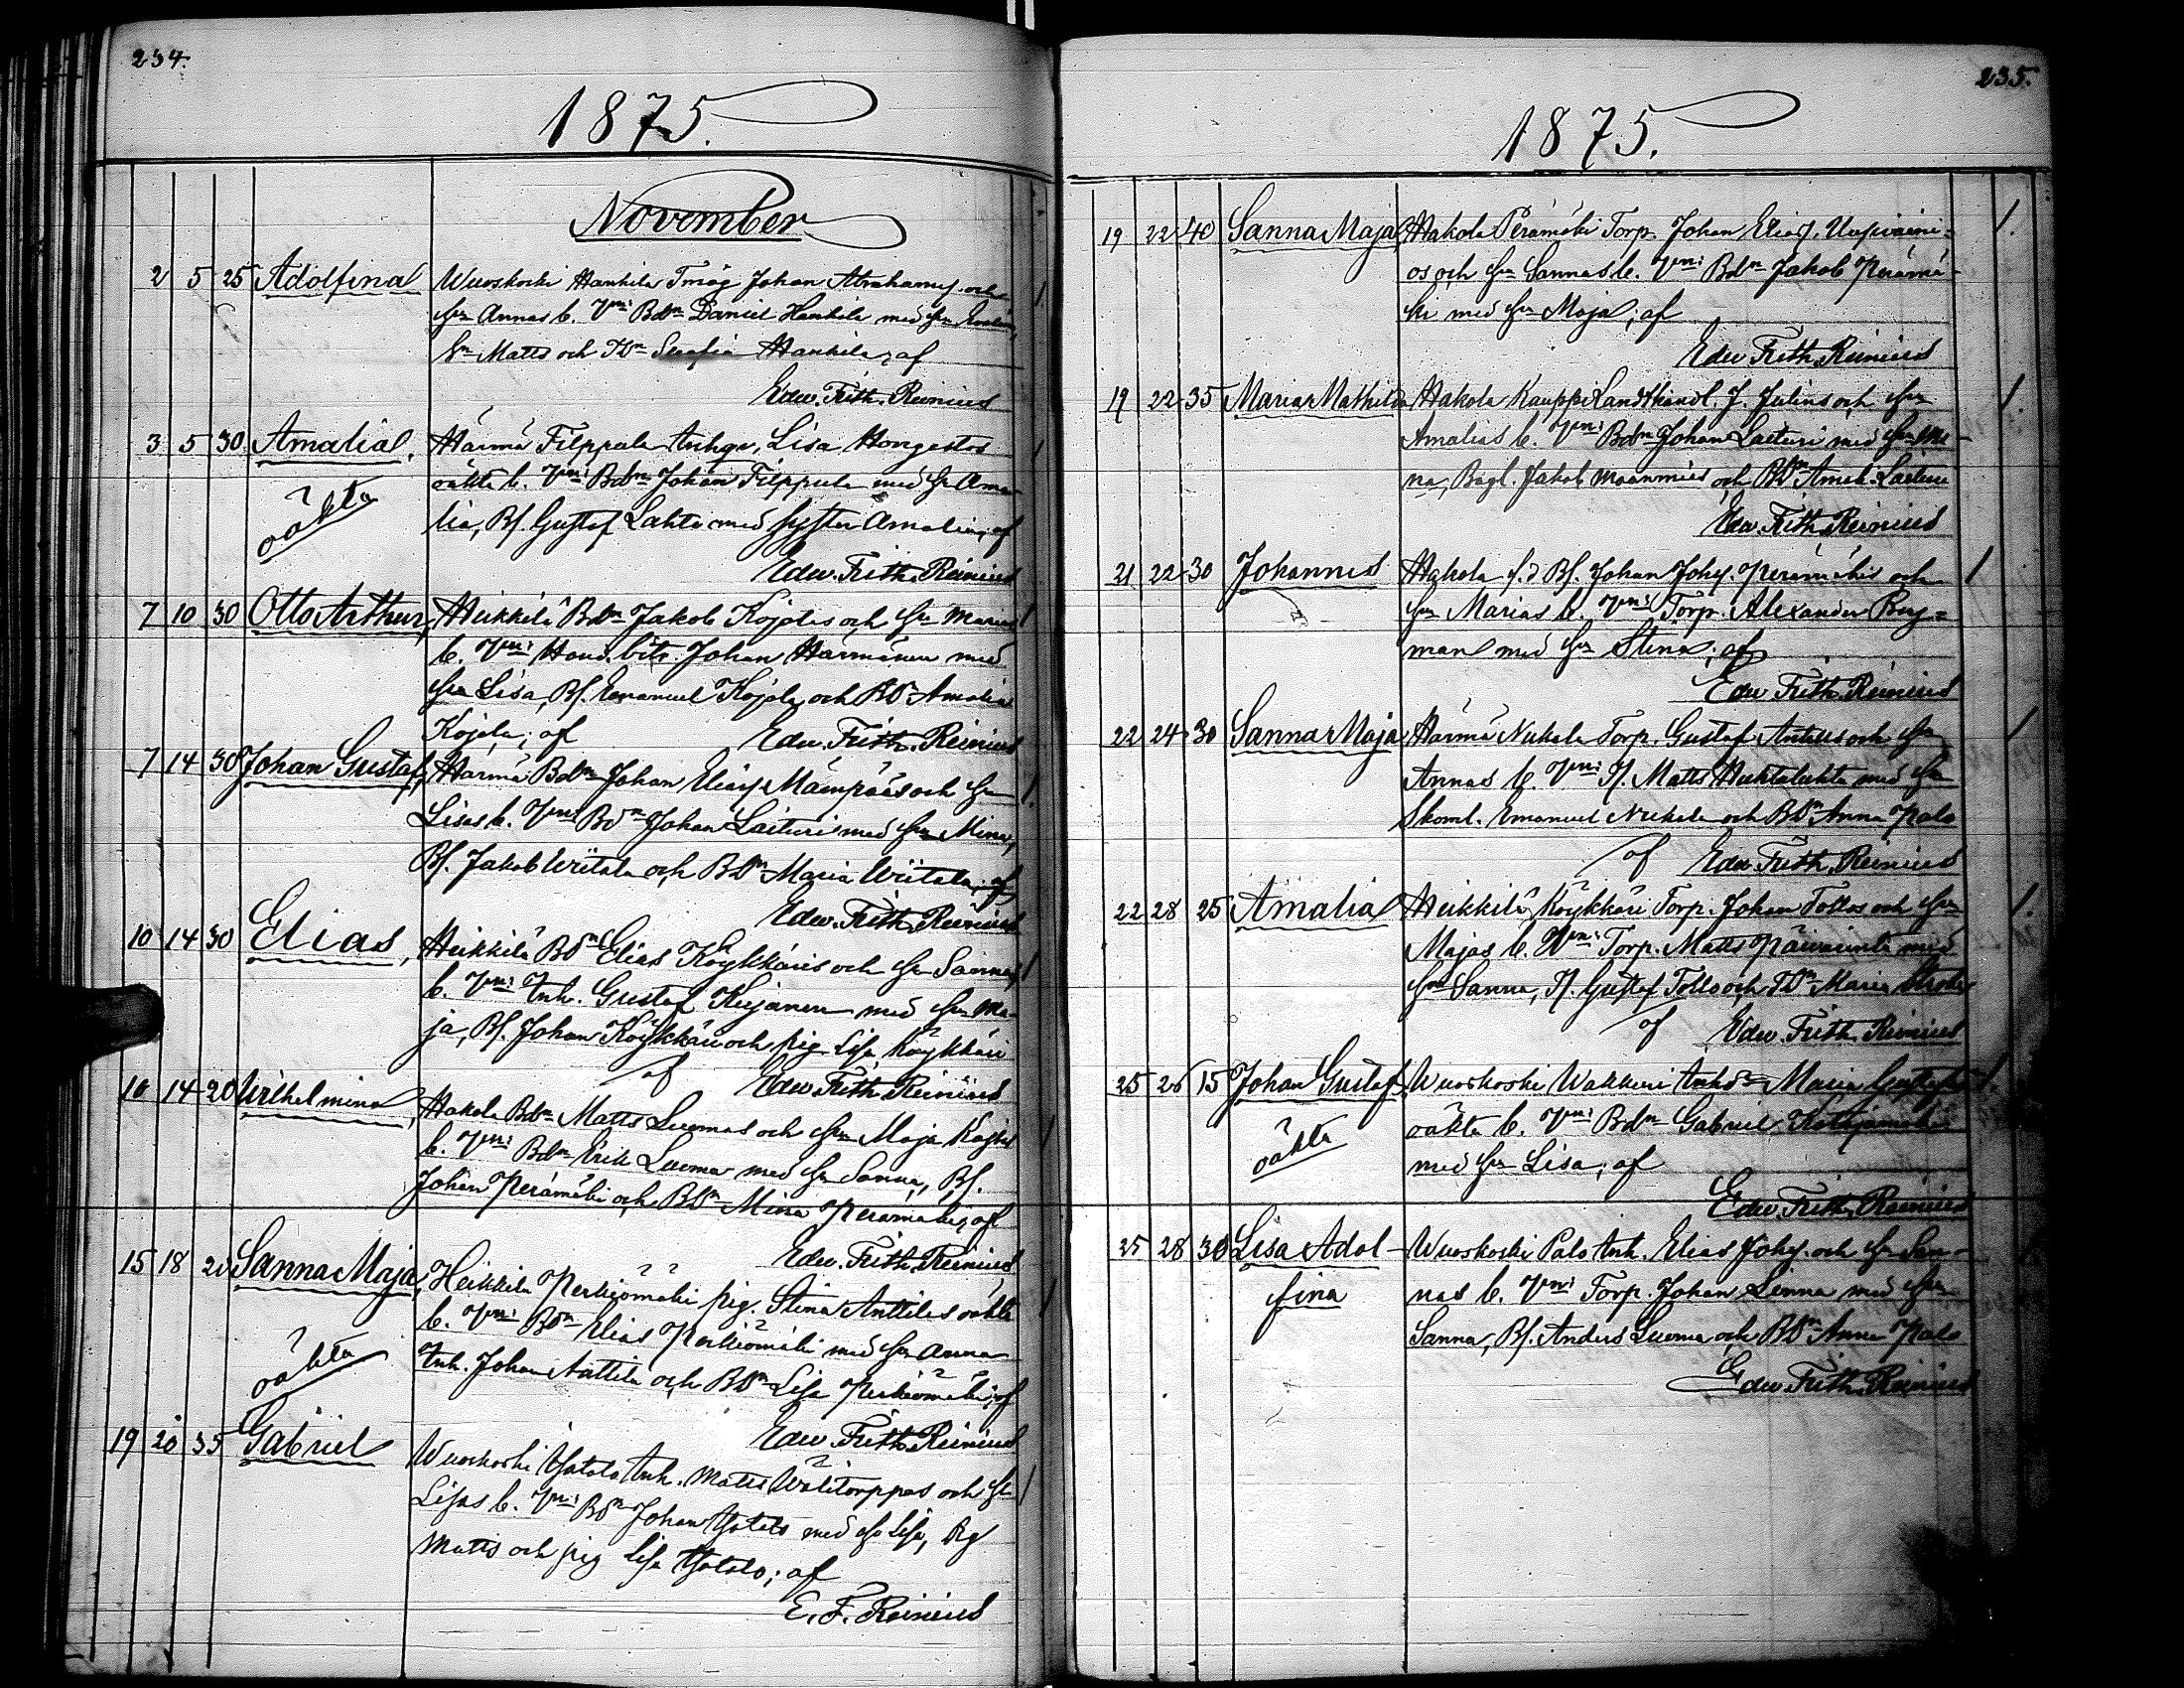 234.
1875.
November
2 5 25 Adolfina Wuoskoski Hanhila Tmåg Johan Abrahamss. och
hu Annas b. Vni: Bdn Daniel Hanhila med hu
Sn Matts och TDr Serafia Hanhila; af
Edw. Frith. Reinius
3 5 30 Amalia, Härmä Filppula Enkqv. Lisa Hongestos
oäkta b. Vni: Bdn Johan Filppula med hu Ama-
oäkta
lia, Bs. Gustaf Lahti med syster Amalia; af
Edw. Frith. Reinius
7 10 30 Otto Arthur, Heikkilä Bdn Jakob Kojolas och hu Marias
b. Vni: Hand. bitr. Johan Härmänen med
hu Lisa, Bs. Emanuel Kojola och BDr Amalia
Kojola; af Edw. Frith. Reinius
7 14 30 Johan Gustaf, Härmä Bdn Johan Eliass. Mämpääs och hu
Lisas b. Vni: Bdn Johan Laituri med hu Mina,
Bs. Jakob Wiitala och BDr Maria Wiitala; af
Edw. Frith. Reinius
10 14 30 Elias, Heikkilä Bdn Elias Köykkäris och hu Sannas
b. Vni: Inh. Gustaf Keijanen med hu Ma-
ja, Bs. Johan Köykkäri och pig. Lisa Köykkäri
af Edw. Frith. Reinius
10 14 20 Wilhelmina, Hakola Bdn Matts Luomas och hu Maja Kajsas
b. Vni: Bdn Erik Luoma med hu Sanna, Bs.
Johan Perämäki och BDr Mina Perämäki; af
Edw. Frith. Reinius
15 18 20 Sanna Maja, Heikkilä Perkiömäki pig. Stina Anttilas oäkta
b. Vni: Bdn Elias Perkiömäki med hu Anna
oäkta
Inh. Johan Anttila och BDr Lisa Perkiömäki; af
Edw. Frith. Reinius
19 20 35 Gabriel Wuoskoski Ylitalo Inh. Matts Wälitorppas och hu
Lisas b. Vni: Bdn Johan Ylitalo med hu Lisa, Dg
Matts och pig Lisa Ylitalo; af
E. F. Reinius
235.
1875.
19 22 40 Sanna Maja, Hakola Perämäki Torp. Johan Eliass. Uusivaini-
os och hu Sannas b. Vni: Bdn Jakob Perämä-
ki med hu Maja; af
Edw Frith. Reinius
19 22 35 Maria Mathilda Hakola Kauppi Landthandl. J. Julins och hu
Amalias b. Vni: Bdn Johan Laituri med hu Mi-
na, Bagl. Jakob Maanmies och BDr Amal. Laituri
Edw. Frith. Reinius
21 22 30 Johannes Hakola f.d Bs. Johan Johss. Perämäkis och
hu Marias b. Vni: Torp. Alexander Berg-
man med hu Stina; af
Edw Frith. Reinius
22 24 30 Sanna Maja Härmä Nukala Torp. Gustaf Antilas och hu
Annas b. Vni: Ts. Matts Huhtaluhta med hu
Skoml. Emanuel Nukala och BDr Anna Palo
af Edw Frith. Reinius
22 28 25 Amalia Heikkilä, Köykkäri Torp. Johan Tollos och hu
Majas b. Vni: Torp. Matts Päivärinta med
hu Sanna, Ts. Gustaf Tollo och TDr Maria
af Edw. Frith. Reinius
25 26 15 Johan Gustaf, Wuoskoski Wakkuri Inhdr Maria
oäkta b. Vni: Bdn Gabriel
oäkta
med hu Lisa; af
Edw. Frith. Reinius
25 28 30 Lisa Adol- Wuoskoski Palo Inh. Elias Johss. och hu San-
fina nas b. Vni: Torp. Johan Linna med hu
Sanna, Bs. Anders Luoma och BDr Anna Palo
Edw. Frith. Reinius